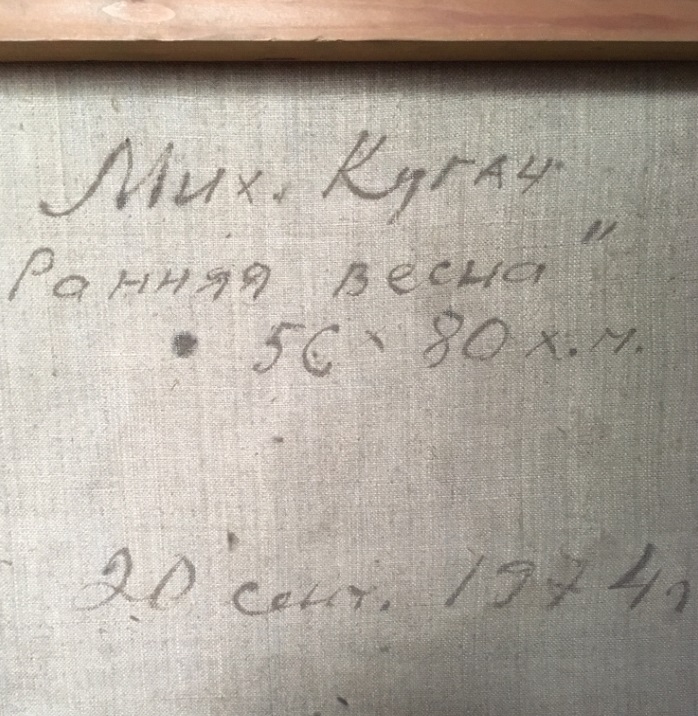 Мих. Кугач
Ранняя весна"
56 х 80 х.м.
20 сент. 1974г